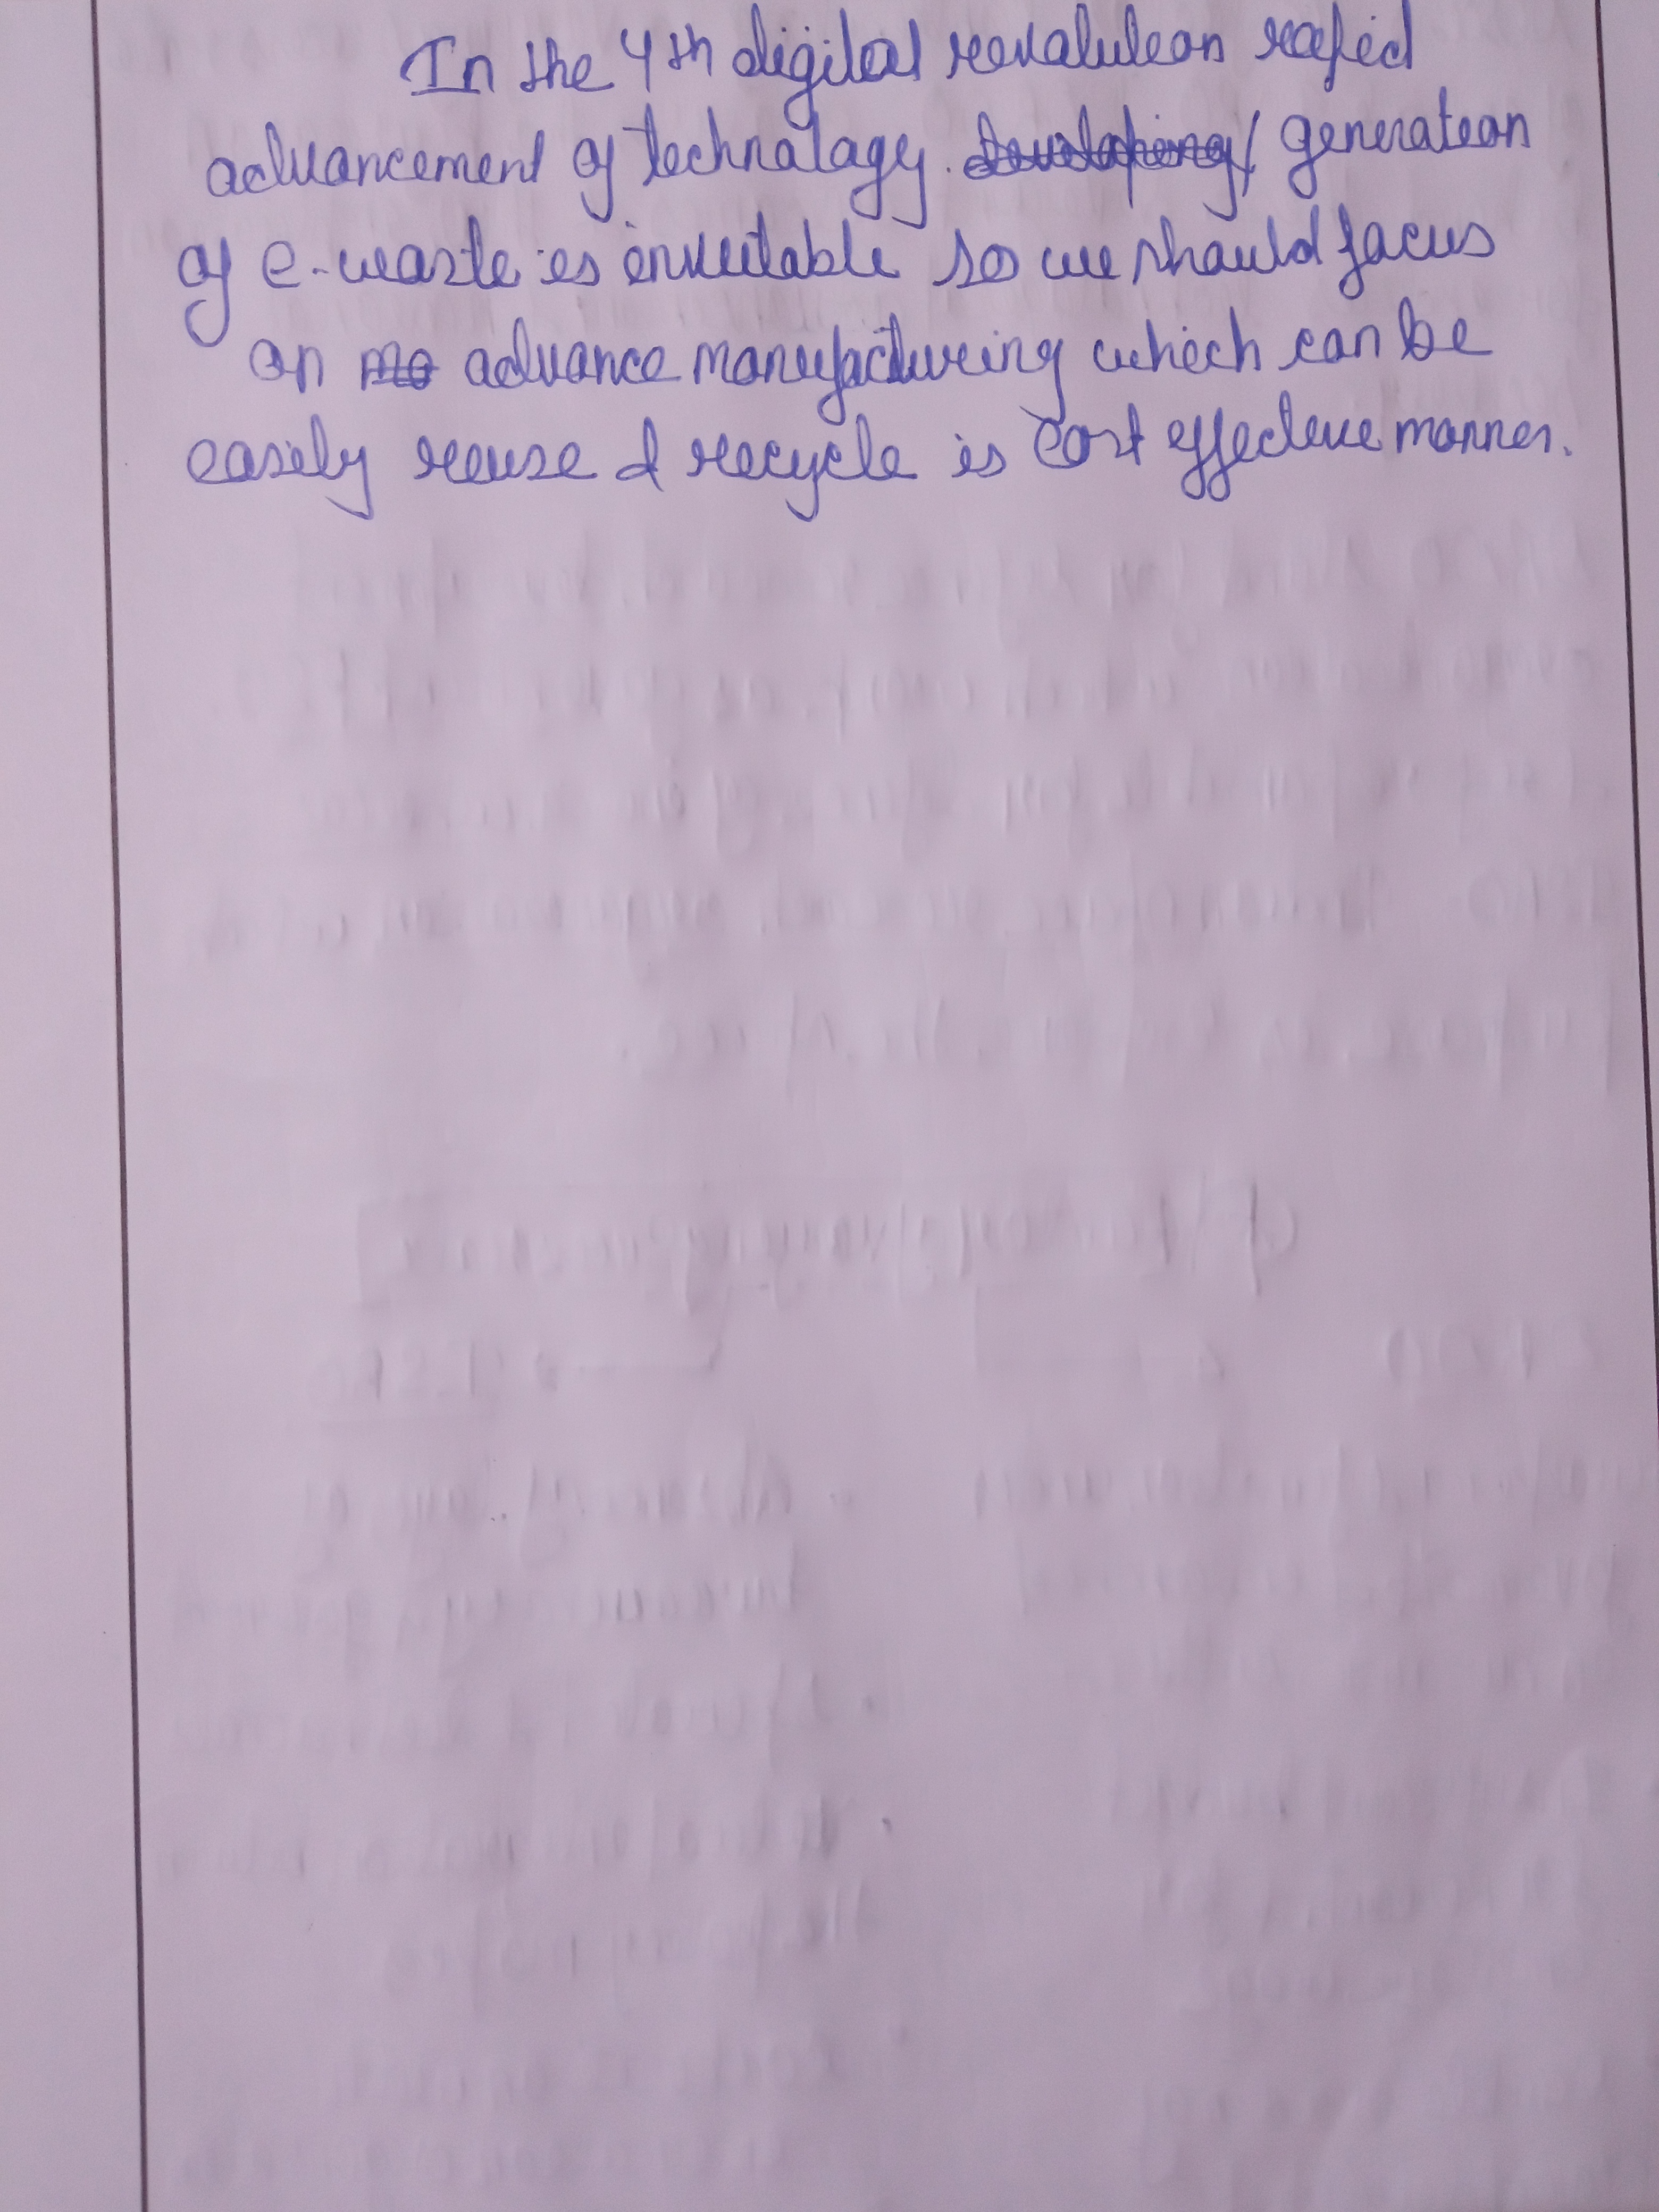 In the 4th digital revolution rapid
advancement of technology. developing generation
of e-waste is inevitable so we should focus
on mo advance manufacturing which can be
easily reuse & recycle is cost effective manner.